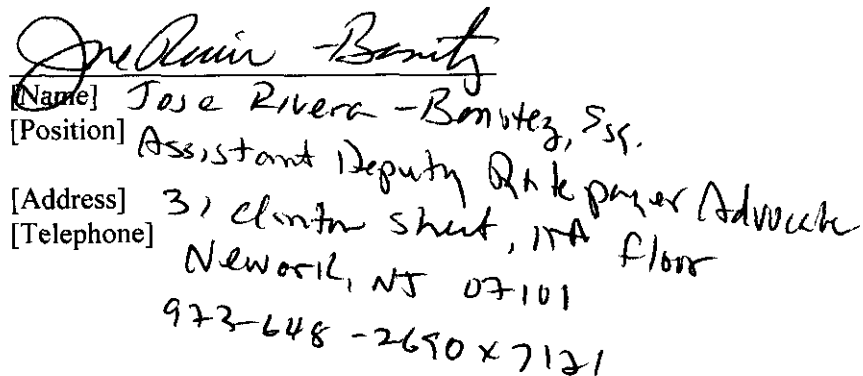 Jose Rivera-Benitez
[Name] Jose Rivera-Benitez, Esq.
[Position] Assistant Deputy Ratepayer Advocate
[Address] 31 Clinton Street, 11th Floor
[Telephone]
Newark, NJ 07101
973-648-2690 x 7121